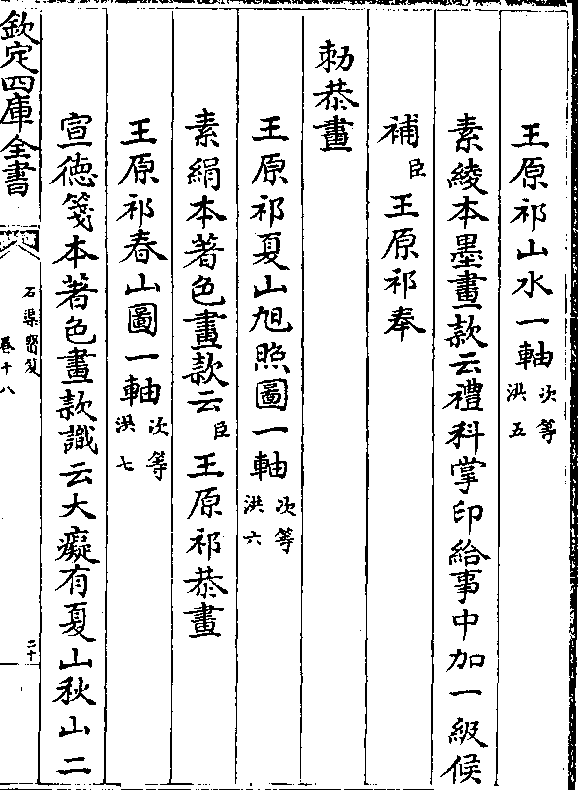 王原祁山水一軸次等洪五
素綾本墨畫款云禮科掌印給事中加一級候
補臣王原祁奉
勅恭畫
王原祁夏山旭照圖一軸次等洪六
素絹本著色畫款云臣王原祁恭畫
王原祁春山圖一軸次等洪七
宣德箋本著色畫款識云大癡有夏山秋山二
欽定四庫全書
石渠寶笈
卷十八
二十